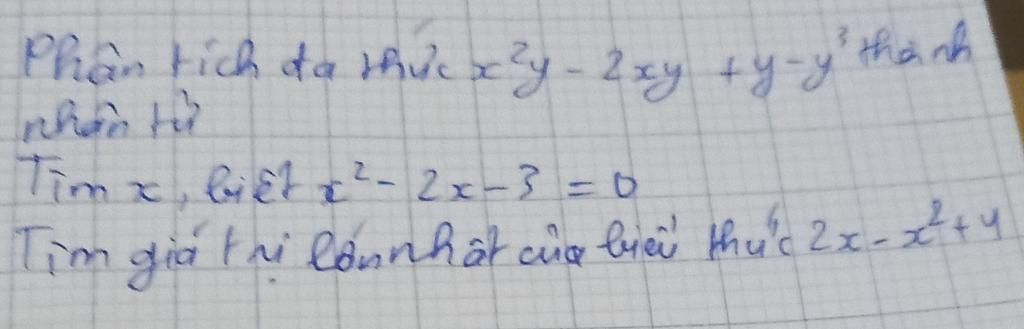 Phân tích đa thức x²y - 2xy + y - y³ thành
nhân tử
Tìm x, biết x² - 2x - 3 = 0
Tìm giá trị lớn nhất của biểu thức 2x - x² + 4